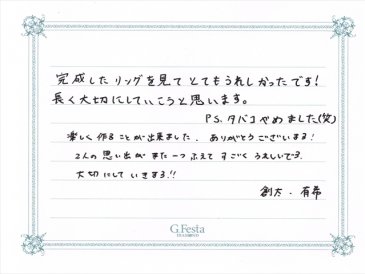 完成したリングを見てとてもうれしかったです!
長く大切にしていこうと思います。
P.S. タバコやめました(笑)
楽しく作ることが出来ました。ありがとうございます!
2人の思い出がまた一つふえてすごくうれしいです。
大切にしていきます!!
創太・有希
G.Festa